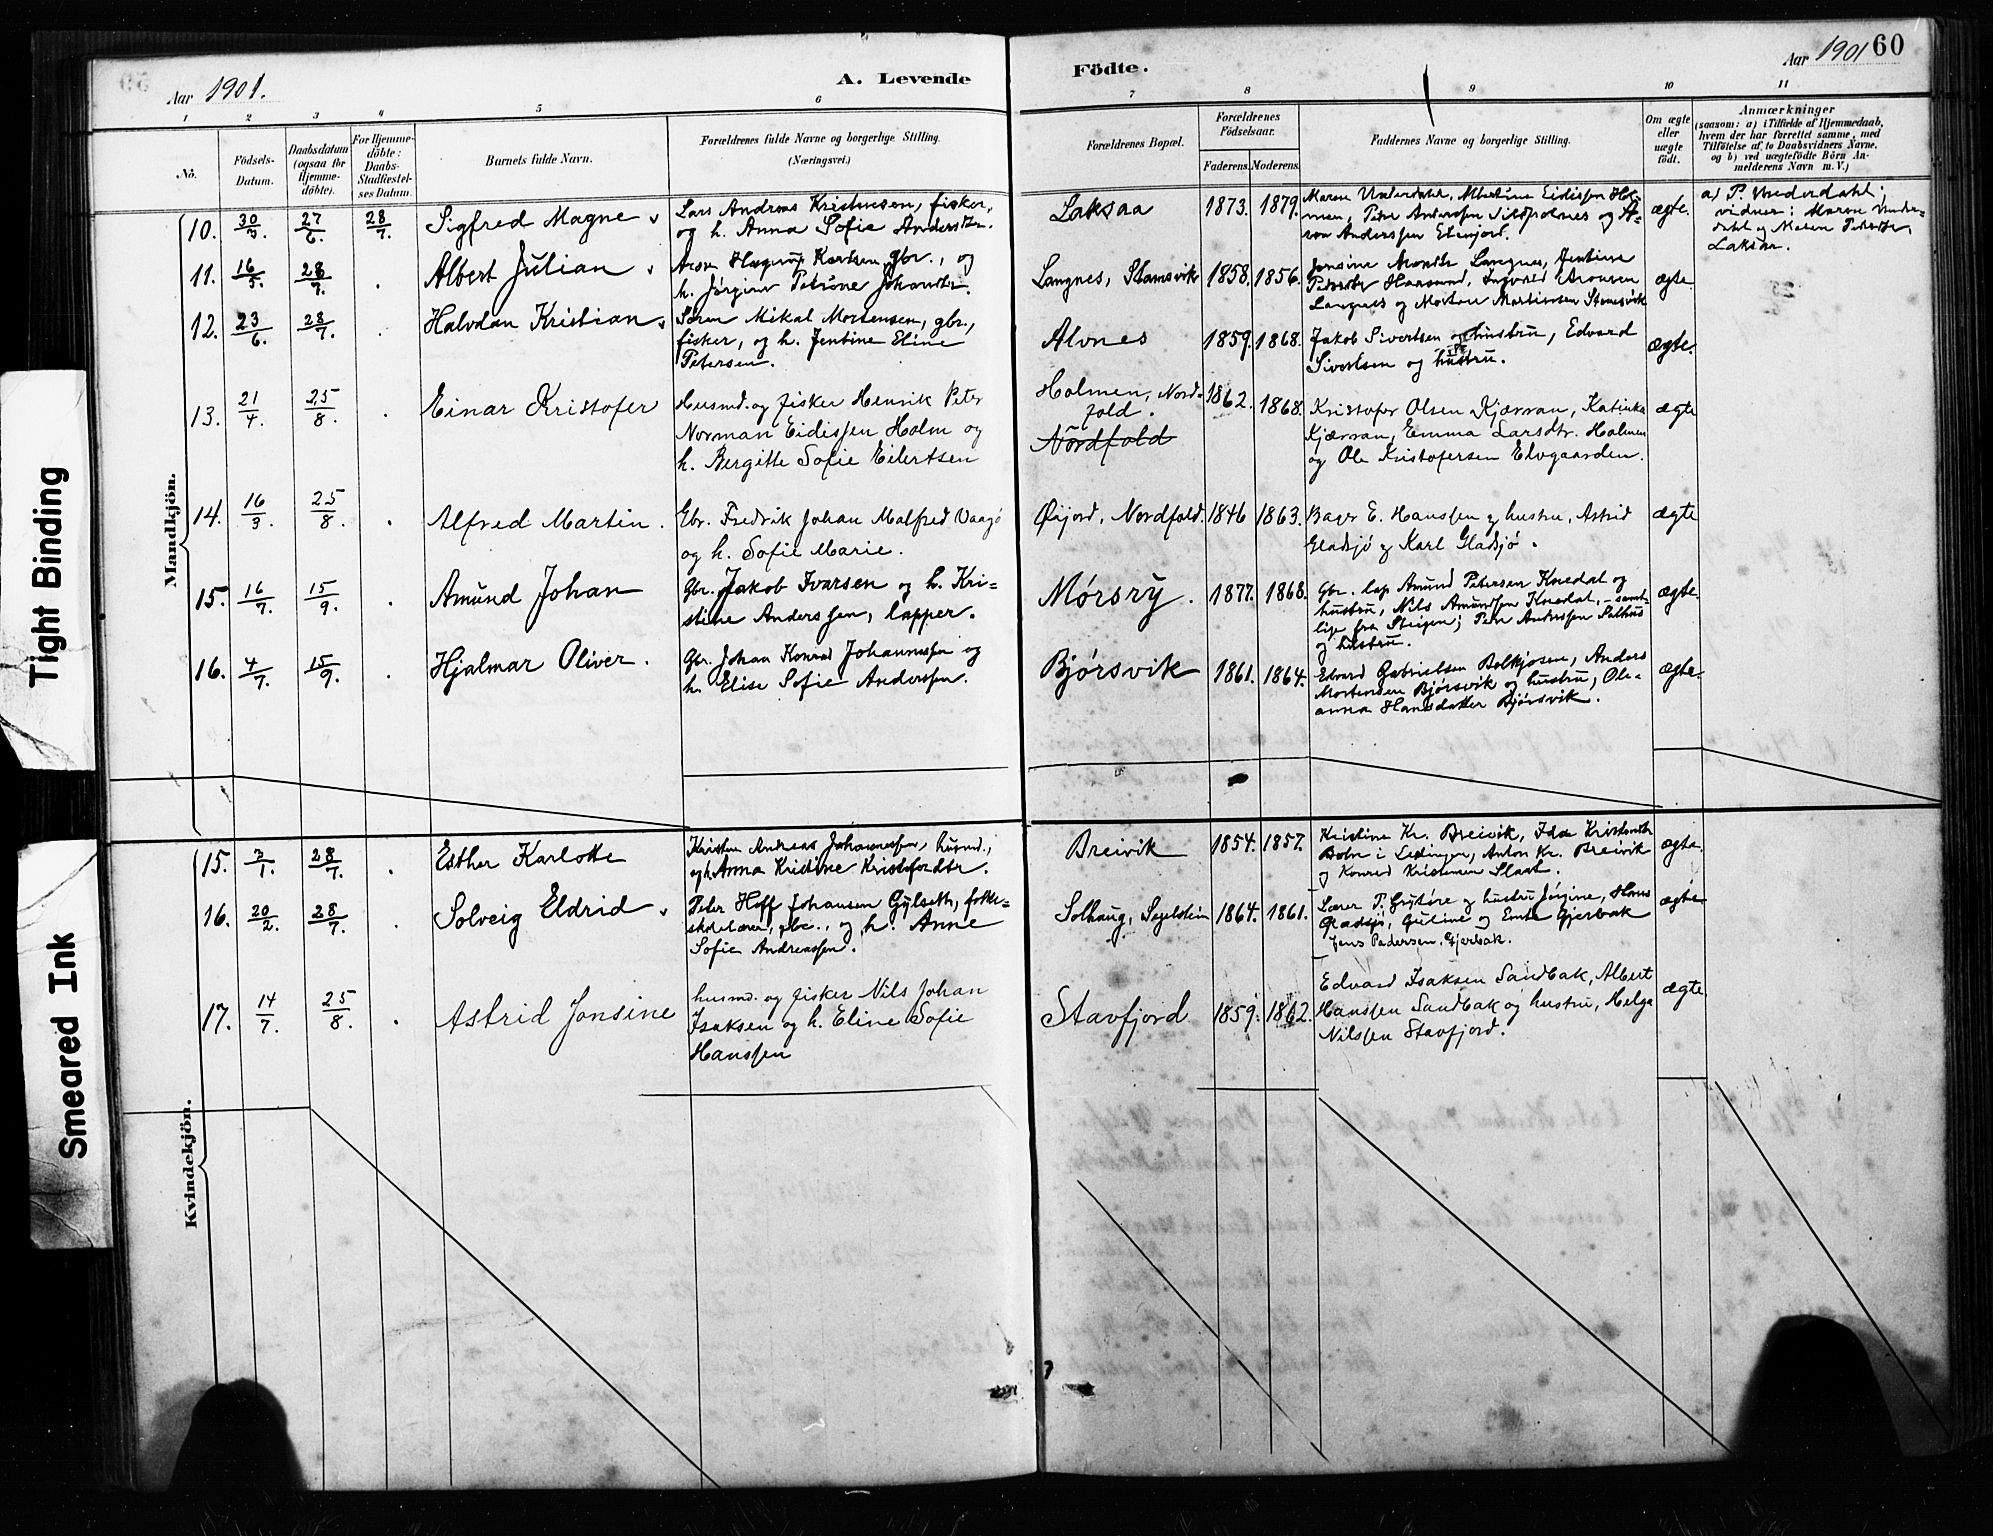 Aar 1901.
A. Levende
Födte.
Aar 1901 60
1 2 3 4 5 6 7 8 9 10 11
No.
Födsels-
Datum.
Daabsdatum
(ogsaa for
Hjemme-
döbte).
For Hjemme-
döbte:
Daabs-
Stadfæstel-
ses Datum.
Barnets fulde Navn.
Forældrenes fulde Navne og borgerlige Stilling.
(Næringsvei.)
Forældrenes Bopæl.
Forældrenes
Födselsaar.
Faderens. Moderens.
Faddernes Navne og borgerlige Stilling.
Om ægte
eller
uægte
födt.
Anmærkninger
(saasom: a) i Tilfælde af Hjemmedaab,
hvem der har forrettet samme, med
Tilföielse af to Daabsvidners Navne,
og b) ved uægtefödte Börn An-
melderens Navn m. V.)
Mandkjön.
10. 30/3 27/6. 28/7. Sigfred Magne
Lars Andreas Kristensen, fisker,
og h. Anna Sofie Andersdtr.
Laksaa 1873. 1879.
ægte.
a) P. Vnderdahl;
vidner: Maren Vnder-
dahl og Maren
Laksaa.
11. 16/5. 28/7. Albert Julian
Hagerup gbr., og
h. Jørgine Petrine Johansdtr.
Langnes, Stamsvik 1858. 1856.
Jonsine Langnes, Jentine
Langnes og Morten Martinsen Stamsvik
ægte.
12. 23/6. 28/7. Halvdan Kristian
Søren Mikal Mortensen, gbr.,
fisker, og h. Jentine Eline
Petersen.
Alvnes 1859. 1868.
Jakob Sivertsen og hustru, Edvard
Sivertsen og hustru.
ægte.
13. 21/4. 25/8. Einar Kristofer
Husmd. og fisker Henrik Peter
Norman Eidissen Holm og
h. Bergitte Sofie Eilertsen
Holmen, Nord-
fold.
Nordfold
1862. 1868.
Kristofer Olsen Kjærran, Katinka
Kjærran, Emma Larsdtr. Holmen
og Ole Kristofersen Elvgaarden.
ægte
14. 16/3. 25/8. Alfred Martin.
Gbr. Fredrik Johan Malfred Vaagø
og h. Sofie Marie.
Øijord, Nordfold. 1846 1863.
Bager E. Hanssen og hustru, Astrid
Gladsjø og Karl Gladsjø.
ægte
15. 16/7. 15/9. Amund Johan
Gbr. Jakob Ivarsen og h. Kri-
stine Anderssen, lapper.
Mørsry. 1877. 1868.
Gbr. lap Amund Petersen Knedal og
hustru, Nils Amundsen Knedal, - samt-
lige fra Steigen; Peter Anderssen
og hustru.
ægte.
16. 4/7. 15/9. Hjalmar Oliver.
Gbr. Johan Konrad Johannessen og
h. Elise Sofie Anderssen.
Bjørsvik 1861. 1864.
Edvard Gabrielsen Bolkjosen, Anders
Mortensen Bjørsvik og hustru, Ole-
anna Hansdatter Bjørsvik.
ægte.
Kvindekjön.
15. 3/1. 28/7. Esther Karlotte
Kristen Andreas Johannessen, husmd.,
og h. Anna Kristine Kristofersdtr.
Breivik 1854. 1857.
Kristine Kr. Breivik, Ida
i Lødingen, Anton Kr. Breivik
og Konrad Kristensen
ægte.
16. 20/2. 28/7. Solveig Eldrid
Peter Hoff Johansen Gylseth, folke-
skolelærer, gbr., og h. Anne
Sofie Andreassen.
Solhaug, 1864. 1861.
Lærer P. Grytøre og hustru Jørgine, Hans
Gladsjø, Guline og Gjerbak
Jens Pedersen, Gjerbak.
ægte
17. 14/7. 25/8. Astrid Jonsine
husmd. og fisker Nils Johan
Isaksen og h. Eline Sofie
Hanssen
Stavfjord 1859. 1862.
Edvard Isaksen Sandbak, Albert
Hanssen Sandbak og hustru, Helga
Nilssen Stavfjord.
ægte
Tight Binding
Smeared Ink